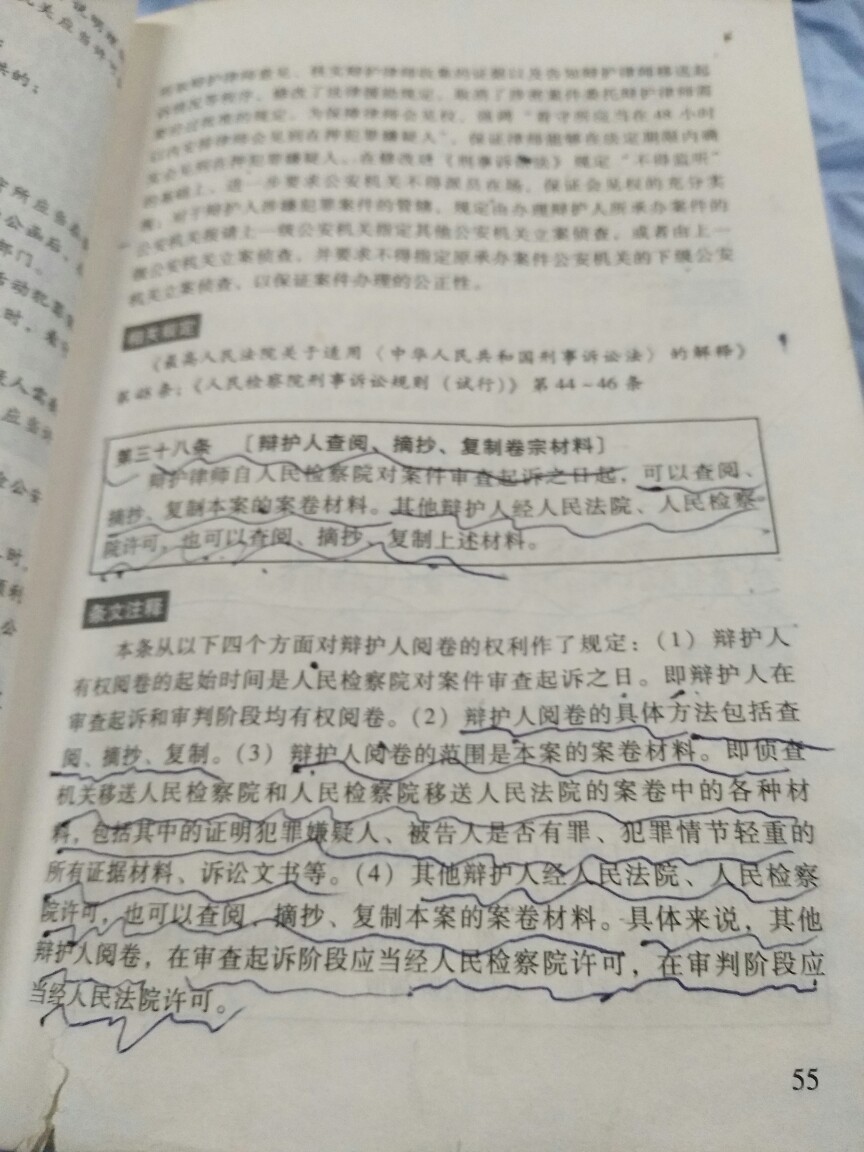 听取辩护律师意见、核实辩护律师收集的证据以及告知辩护律师移送起
诉情况等程序。修改了法律援助规定。取消了涉密案件委托辩护律师需
要经过批准的规定。为保障律师会见权，强调“看守所应当在48小时
以内安排律师会见到在押犯罪嫌疑人”，保证律师能够在法定期限内确
实会见到在押犯罪嫌疑人。在修改后《刑事诉讼法》规定“不得监听”
的基础上，进一步要求公安机关不得派员在场，保证会见权的充分实
现；对于辩护人涉嫌犯罪案件的管辖，规定由办理辩护人所承办案件的
公安机关报请上一级公安机关指定其他公安机关立案侦查，或者由上一
级公安机关立案侦查，并要求不得指定原承办案件公安机关的下级公安
机关立案侦查，以保证案件办理的公正性。
相关规定
《最高人民法院关于适用〈中华人民共和国刑事诉讼法〉的解释》
第48条；《人民检察院刑事诉讼规则（试行）》第44～46条
第三十八条 ［辩护人查阅、摘抄、复制卷宗材料］
辩护律师自人民检察院对案件审查起诉之日起，可以查阅、
摘抄、复制本案的案卷材料。其他辩护人经人民法院、人民检察
院许可，也可以查阅、摘抄、复制上述材料。
条文注释
本条从以下四个方面对辩护人阅卷的权利作了规定：（1）辩护人
有权阅卷的起始时间是人民检察院对案件审查起诉之日。即辩护人在
审查起诉和审判阶段均有权阅卷。（2）辩护人阅卷的具体方法包括查
阅、摘抄、复制。（3）辩护人阅卷的范围是本案的案卷材料。即侦查
机关移送人民检察院和人民检察院移送人民法院的案卷中的各种材
料，包括其中的证明犯罪嫌疑人、被告人是否有罪、犯罪情节轻重的
所有证据材料、诉讼文书等。（4）其他辩护人经人民法院、人民检察
院许可，也可以查阅、摘抄、复制本案的案卷材料。具体来说，其他
辩护人阅卷，在审查起诉阶段应当经人民检察院许可，在审判阶段应
当经人民法院许可。
55